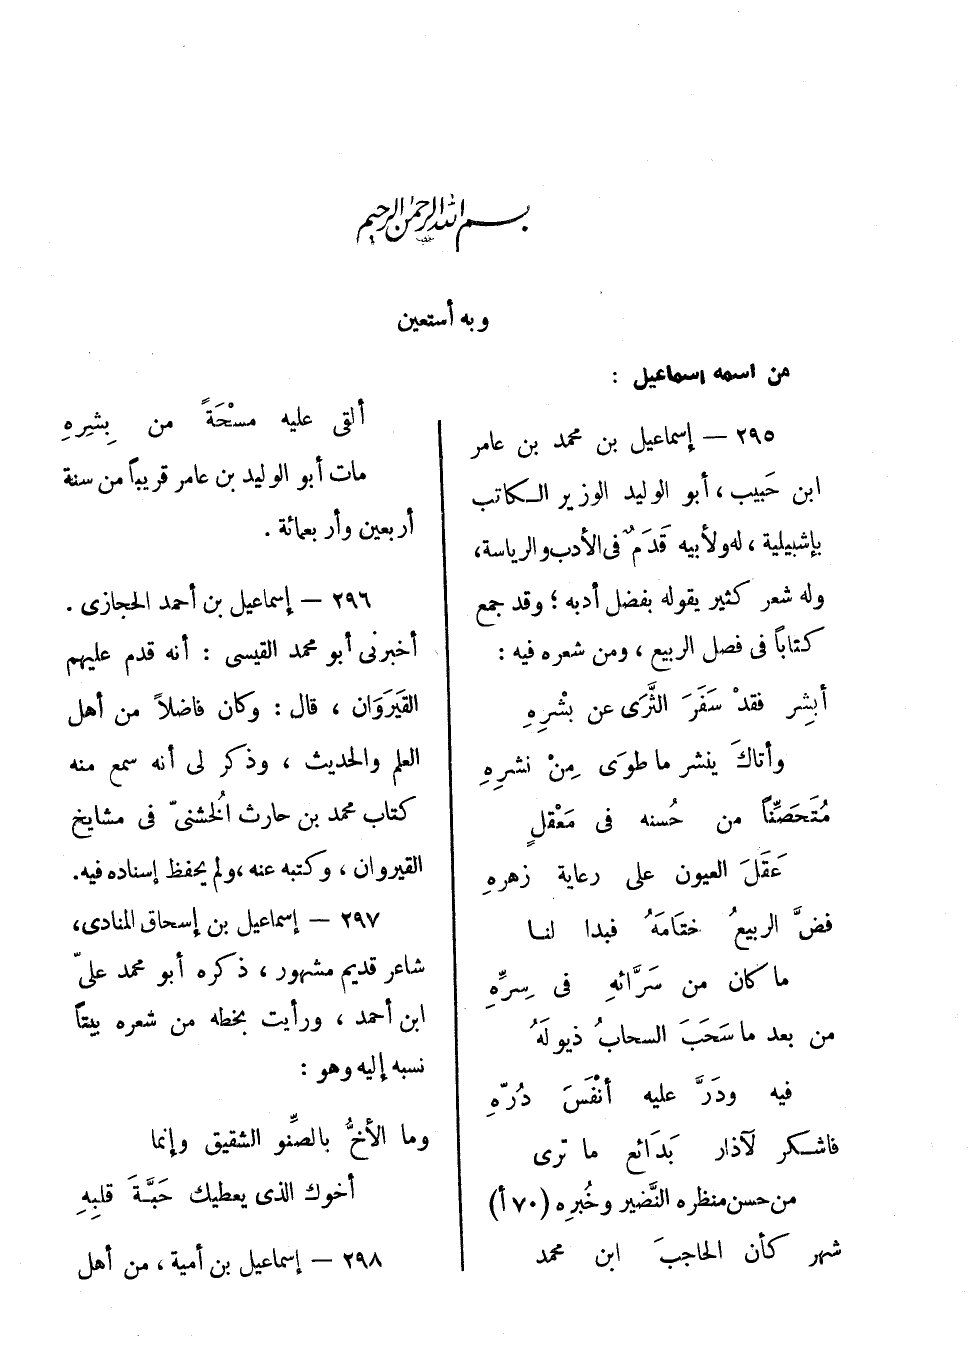 بسم الله الرحمن الرحيم
وبه أستعين
من اسمه إسماعيل :
٢٩٥ — إسماعيل بن محمد بن عامر
ابن حَبيب ، أبو الوليد الوزير الكاتب
بإشبيلية ، له ولأبيه قَدَمٌ فى الأدب والرياسة،
وله شعر كثير يقوله بفضل أدبه ؛ وقد جمع
كتاباً فى فصل الربيع ، ومن شعره فيه :
أبشِر فقدْ سَفَرَ الثَّرَى عن بشْرِهِ
وأتاكَ ينشر ما طوَى مِنْ نشرِهِ
مُتَحَصِّناً من حُسنه فى مَعْقلٍ
عَقَلَ العيون على رعاية زهرهِ
فضَّ الربيعُ ختَامَهُ فبدا لنا
ما كان من سَرَّائهِ فى سِرِّهِ
من بعد ما سَحَبَ السحابُ ذيولَهُ
فيه ودَرَّ عليه أنْفَسَ دُرّهِ
فاشكر لآذار بَدَائع ما ترى
من حسن منظره النَّضير وخُبرِه (٧٠ أ)
شهر كأن الحاجبَ ابن محمد
ألقى عليه مسْحَةً من بِشرِهِ
مات أبو الوليد بن عامر قريباً من سنة
أربعين وأربعمائة .
٢٩٦ — إسماعيل بن أحمد الحجازى .
أخبرنى أبو محمد القيسى : أنه قدم عليهم
القَيَرَوَان ، قال : وكان فاضلاً من أهل
العلم والحديث ، وذكر لى أنه سمع منه
كتاب محمد بن حارث الُخشنىّ فى مشايخ
القيروان ، وكتبه عنه ،ولم يحفظ إسناده فيه.
٢٩٧ — إسماعيل بن إسحاق المنادى،
شاعر قديم مشهور ، ذكره أبو محمد علىّ
ابن أحمد ، ورأيت بخطه من شعره بيتاً
نسبه إليه وهو :
وما الأخُّ بالصِّنو الشقيق وإنما
أخوك الذى يعطيك حَبَّةَ قلبِهِ
٢٩٨ — إسماعيل بن أمية ، من أهل